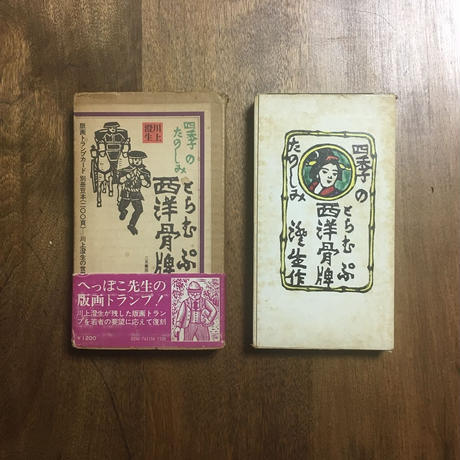 四季の
たのしみ
川上
澄生
とらむぷ
西洋骨牌
版画トランプカード 別冊豆本二〇〇頁
へっぽこ先生の
版画トランプ!
川上澄生が残した版画トラン
プを若者の要望に応えて復刻
¥1200
四季の
たのしみ
とらむぷ
西洋骨牌
澄生作